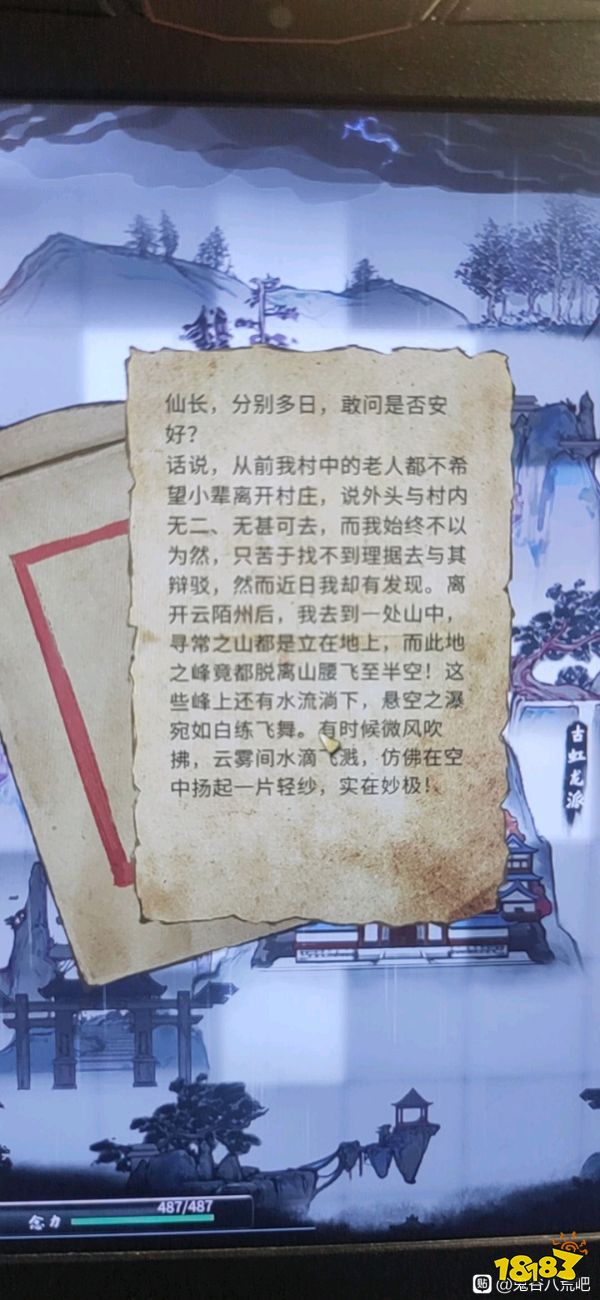 仙长，分别多日，敢问是否安
好？
话说，从前我村中的老人都不希
望小辈离开村庄，说外头与村内
无二、无甚可去，而我始终不以
为然，只苦于找不到理据去与其
辩驳，然而近日我却有发现。离
开云陌州后，我去到一处山中，
寻常之山都是立在地上，而此地
之峰竟都脱离山腰飞至半空！这
些峰上还有水流淌下，悬空之瀑
宛如白练飞舞。有时候微风吹
拂，云雾间水滴飞溅，仿佛在空
中扬起一片轻纱，实在妙极！
古虹龙派
487/487
念力
18183
贴 @鬼谷八荒吧